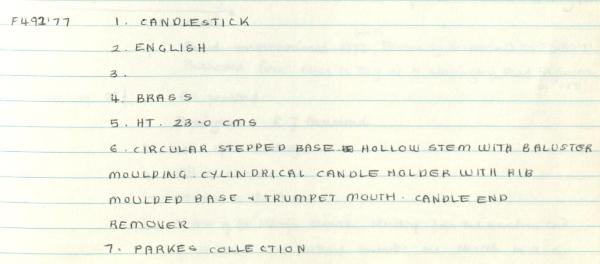 F492'77 1. CANDLESTICK
2. ENGLISH
3.
4. BRASS
5. HT. 23.0 CMS
6. CIRCULAR STEPPED BASE HOLLOW STEM WITH BALUSTER
MOULDING. CYLINDRICAL CANDLE HOLDER WITH RIB
MOULDED BASE & TRUMPET MOUTH. CANDLE END
REMOVER
7. PARKES COLLECTION